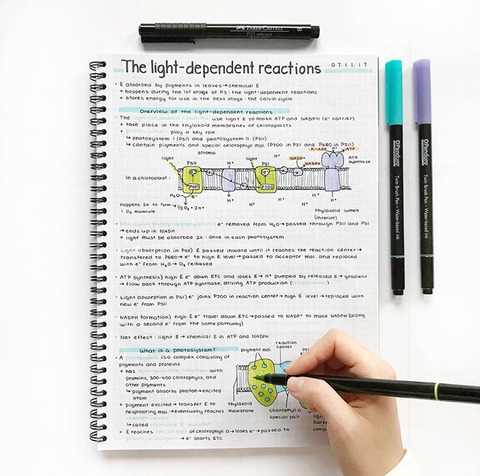 FABER-CASTELL
The light-dependent reactions
07.11.17
· E absorbed by pigments in leaves → chemical E
+ happens during the 1st stage of PS: the light-dependent reactions
+ stores energy for use in the next stage: the calvin cycle
Overview of the light-dependent reactions
The use light E to make ATP and NADPH (e⁻ carrier)
+ take place in the thylakoid membrane of chloroplasts
play a key role
+ photosystem I (PSI) and photosystem II (PSII)
↳ contain pigments and special chlorophyll mol. (P700 in PSI and P680 in PSII)
stroma
light
PSII
H⁺
light
PSI
NADP+
NADPH
ATP
ATP
synthase
In a chloroplast:
P680
P700
H₂O
½O₂ + 2H⁺
H⁺
happens 2x to form
1 O₂ molecule
thylakoid lumen
(interior)
e⁻ removed from H₂O → passed through PSII and PSI
→ ends up in NADPH
+ light must be absorbed 2x: once in each photosystem
· Light absorption in PSII) E passed inward until it reaches the reaction center →
transferred to P680 → e⁻ to high E level → passed to acceptor mol. and replaced
with e⁻ from H₂O → O₂ released
· ATP synthesis) high E e⁻ down ETC and loses E → H⁺ pumped by released E → gradient
→ flow back through ATP synthase, driving ATP production
· Light absorption in PSI) e⁻ joins P700 in reaction center → high E level → replaced with
new e⁻ from PSII
· NADPH formation) high E e⁻ travel down ETC → passed to NADP⁺ to make NADPH (along
with a second e⁻ from the same pathway)
· Net effect: light E → chemical E in ATP and NADPH
What is a photosystem?
· A is a complex consisting of
pigments and proteins
+ has with
proteins, 300-400 chlorophylls, and
other pigments
↳ pigment absorbs photon → excited
state
+ pigment excited → transfer E to
neighboring mol. → eventually reaches
↳ called
+ E reaches of chlorophyll a → loses e⁻ → passed to
→ e⁻ starts ETC
pigment mol.
reaction
center
thylakoid
membrane
chlorophyll a
special pair
light